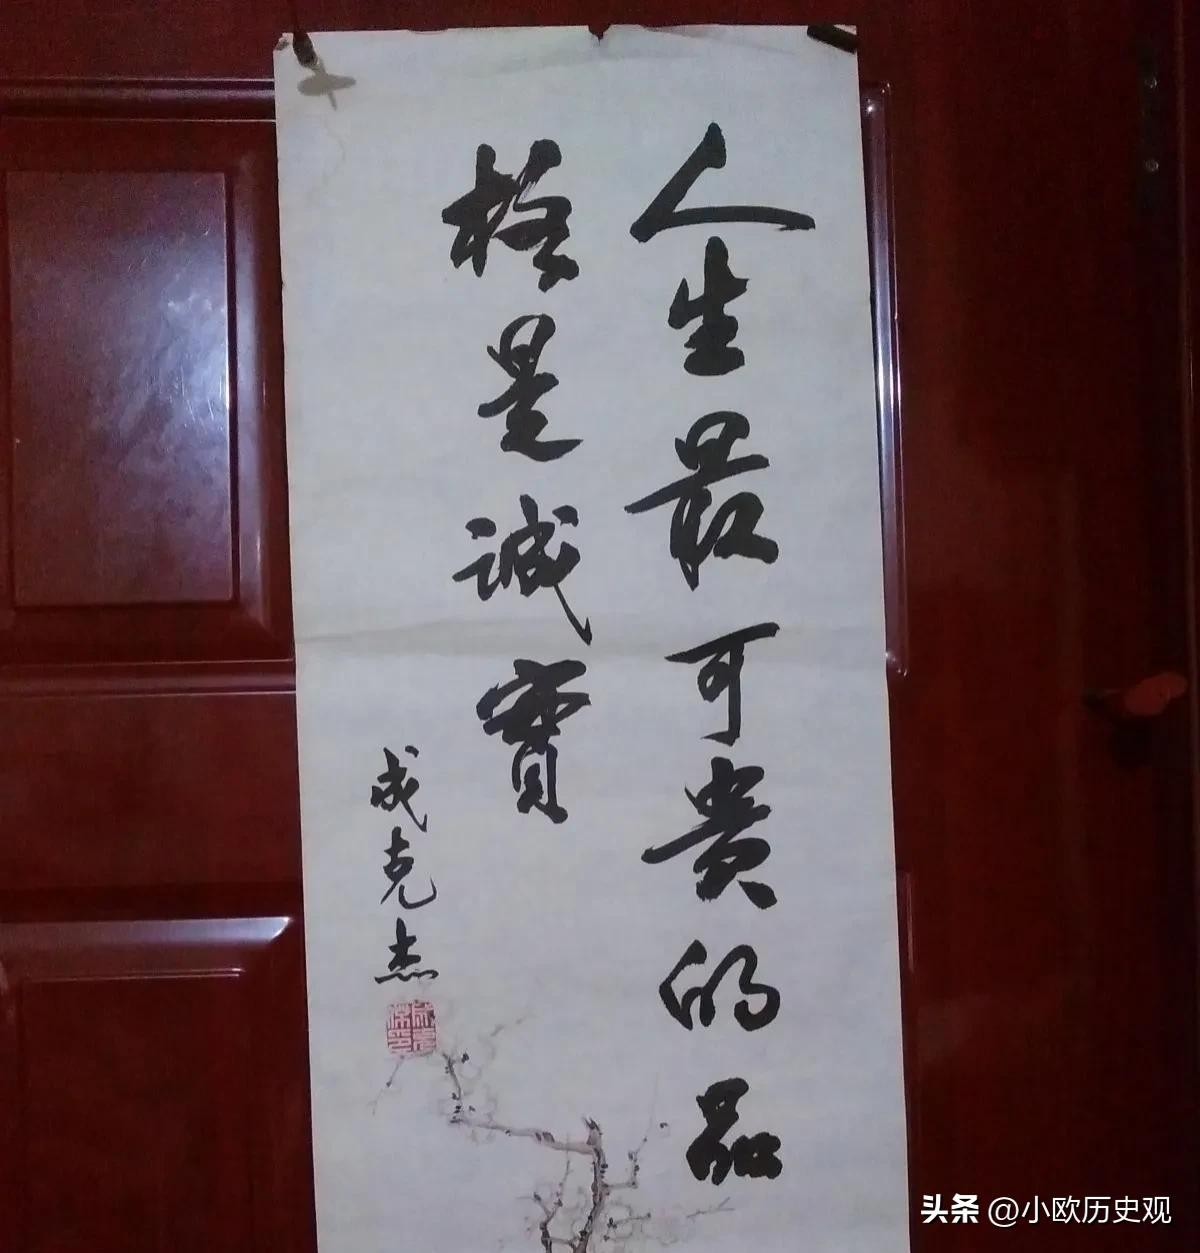 人生最可贵的品
格是诚實
成克杰
成克傑印
头条 @小欧历史观